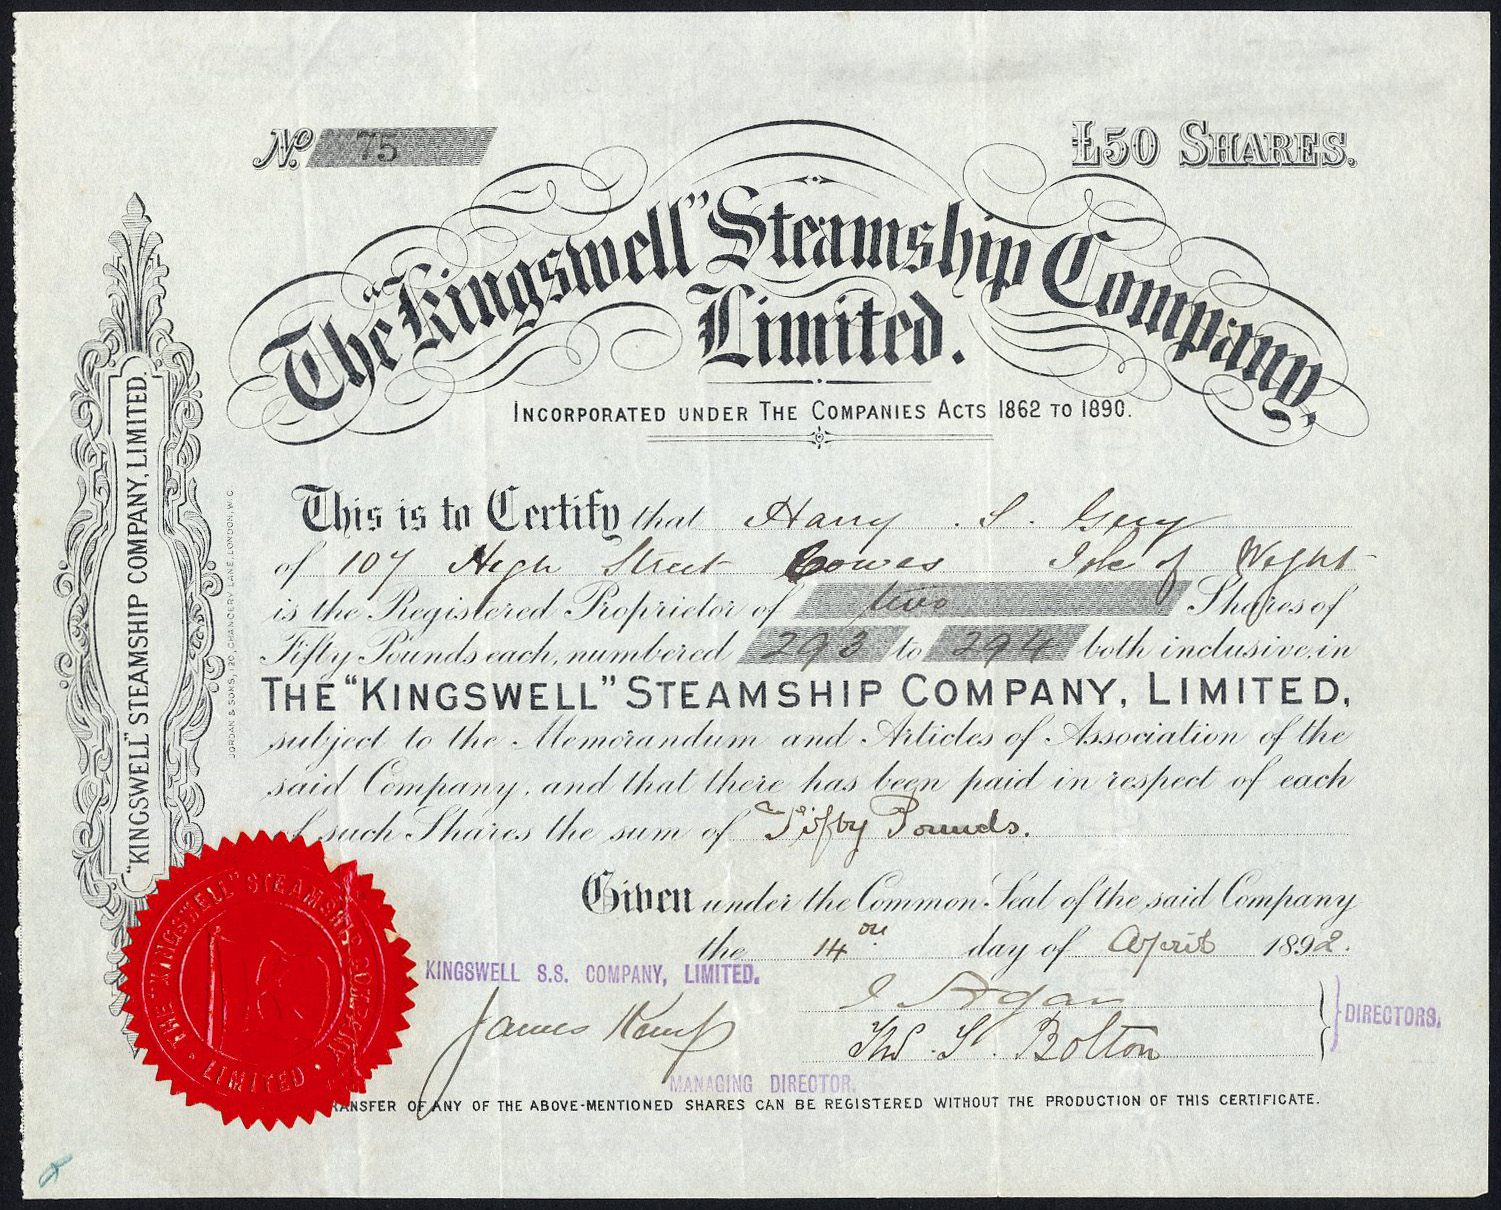 No. 75
£50 SHARES.
The "Kingswell" Steamship Company,
Limited.
INCORPORATED UNDER THE COMPANIES ACTS 1862 TO 1890.
This is to Certify that Harry . S .
of 107 High Street Cowes Isle of Wight
is the Registered Proprietor of two Shares of
Fifty Pounds each, numbered 293 to 294 both inclusive, in
THE "KINGSWELL" STEAMSHIP COMPANY, LIMITED,
subject to the Memorandum and Articles of Association of the
said Company, and that there has been paid in respect of each
of such Shares the sum of Fifty Pounds.
Given under the Common Seal of the said Company
the 14th day of April 1892.
KINGSWELL S.S. COMPANY, LIMITED.
James Kemp
MANAGING DIRECTOR.
Thos. S. Bolton
DIRECTORS.
TRANSFER OF ANY OF THE ABOVE-MENTIONED SHARES CAN BE REGISTERED WITHOUT THE PRODUCTION OF THIS CERTIFICATE.
"KINGSWELL" STEAMSHIP COMPANY, LIMITED.
JORDAN & SONS, 120, CHANCERY LANE, LONDON, W.C.
THE "KINGSWELL" STEAMSHIP COMPANY
LIMITED